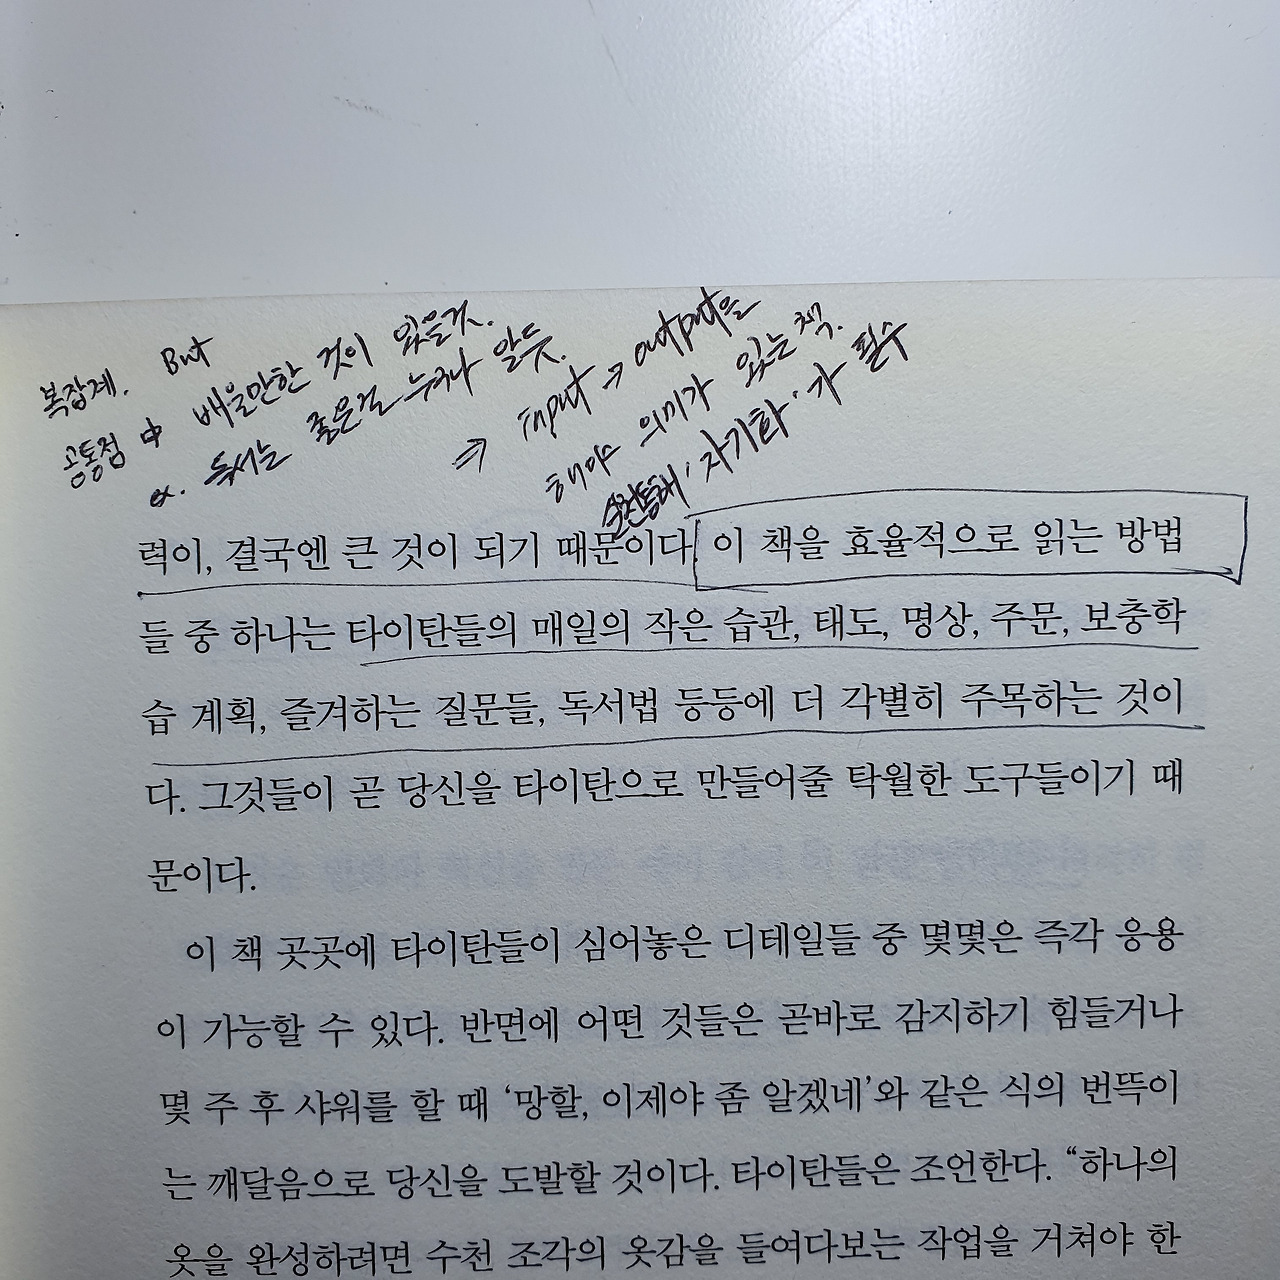 복잡계. But
공통점 中 배울만한 것이 있을것.
α. 독서는 좋은걸 누구나 알듯.
⇒ input → output을
해야 의미가 있는 책.
실천통해 '자기화'가 필수
력이, 결국엔 큰 것이 되기 때문이다. 이 책을 효율적으로 읽는 방법
들 중 하나는 타이탄들의 매일의 작은 습관, 태도, 명상, 주문, 보충학
습 계획, 즐겨하는 질문들, 독서법 등등에 더 각별히 주목하는 것이
다. 그것들이 곧 당신을 타이탄으로 만들어줄 탁월한 도구들이기 때
문이다.
이 책 곳곳에 타이탄들이 심어놓은 디테일들 중 몇몇은 즉각 응용
이 가능할 수 있다. 반면에 어떤 것들은 곧바로 감지하기 힘들거나
몇 주 후 샤워를 할 때 ‘망할, 이제야 좀 알겠네’와 같은 식의 번뜩이
는 깨달음으로 당신을 도발할 것이다. 타이탄들은 조언한다. “하나의
옷을 완성하려면 수천 조각의 옷감을 들여다보는 작업을 거쳐야 한